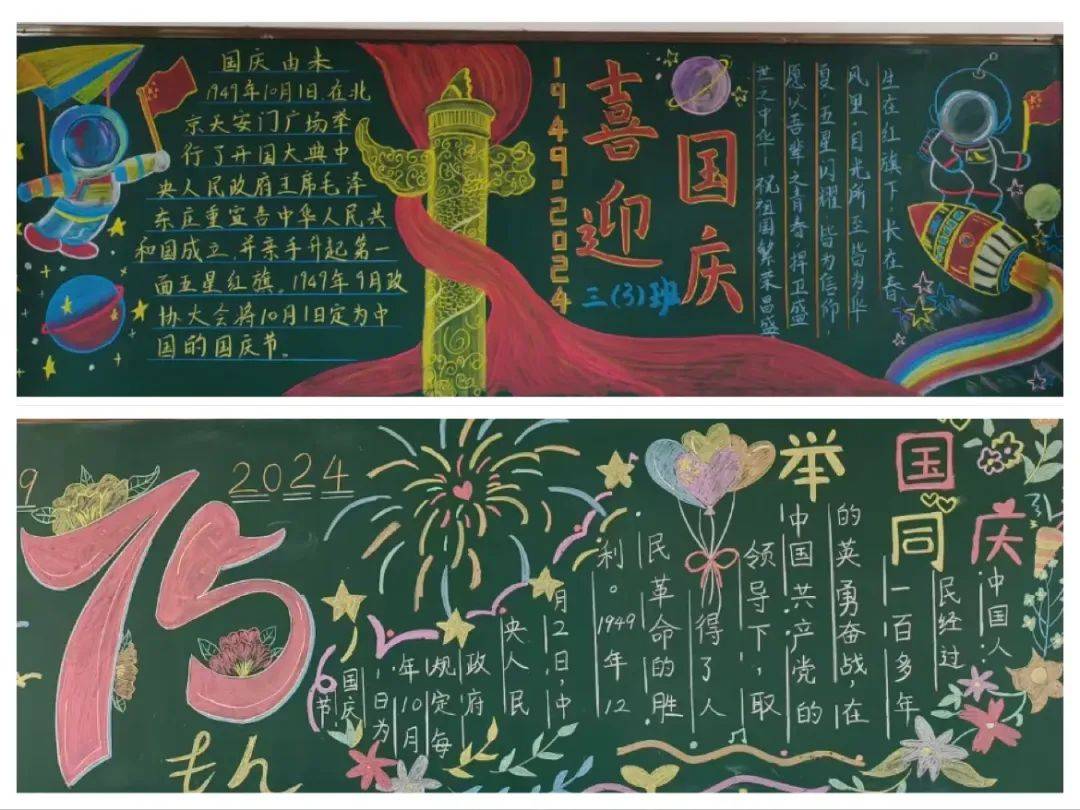 国庆由来
1949年10月1日在北
京天安门广场举
行了开国大典中
央人民政府主席毛泽
东庄重宣告中华人民共
和国成立,并亲手升起第一
面五星红旗。1949年9月政
协大会将10月1日定为中
国的国庆节。
1949-2024
喜迎
国庆
三(3)班
生在红旗下,长在春
风里目光所至皆为华
夏,五星闪耀,皆为信仰,
愿以吾辈之青春,捍卫盛
世之中华—祝祖国繁荣昌盛
9
2024
75
th
举国同庆
中国人
民经过
一百多年
的英勇奋战,在
中国共产党的
领导下,取
得了人
民革命的胜
利。1949年12
月2日,中
央人民
政府
规定每
年10月
1日为
国庆
节。